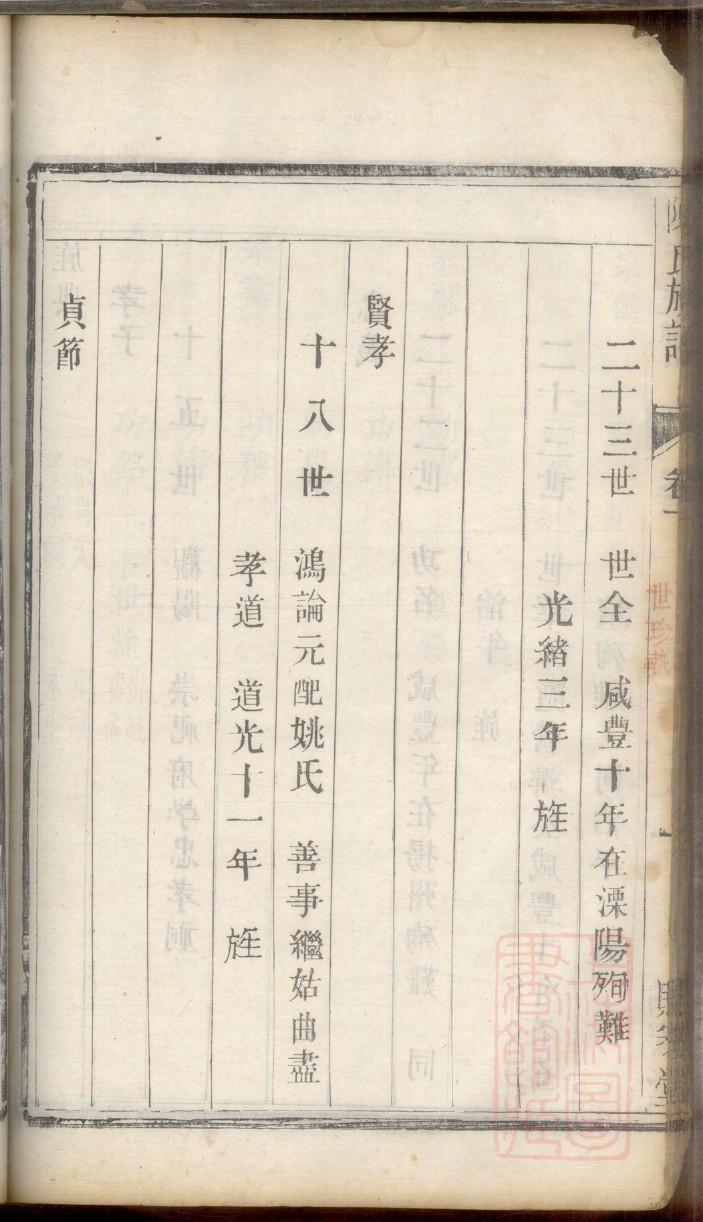 陳氏族譜
卷一
世珍執
二十三世 世全 咸豐十年在溧陽殉難
光緒三年 旌
賢孝
十八世 鴻論元配姚氏 善事繼姑曲盡
孝道 道光十一年 旌
貞節